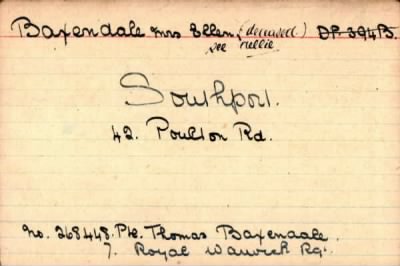 Baxendale Mrs Ellen, (deceased) DP. 394B.
see Nellie
Southport.
42. Poulton Rd.
No. 268448. Pte. Thomas Baxendale.
7. Royal Warwick Rgt.